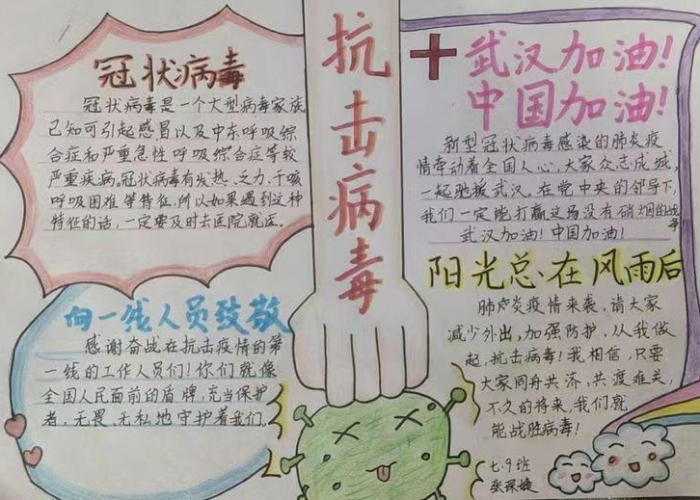 冠状病毒
冠状病毒是一个大型病毒家族
已知可引起感冒以及中东呼吸综
合症和严重急性呼吸综合症等较
严重疾病,冠状病毒有发热、乏力、干咳
呼吸困难等特征,所以如果遇到这种
特征的话,一定要及时去医院就医.
向一线人员致敬
感谢奋战在抗击疫情的第
一线的工作人员们!你们就像
全国人民面前的盾牌,充当保护
者,无畏、无私地守护着我们.
抗击病毒
武汉加油!
中国加油!
新型冠状病毒感染的肺炎疫
情牵动着全国人心,大家众志成城,
一起驰援武汉,在党中央的领导下,
我们一定能打赢这场没有硝烟的战
争
武汉加油!中国加油!
阳光总在风雨后
肺炎疫情来袭,请大家
减少外出,加强防护,从我做
起,抗击病毒!我相信,只要
大家同舟共济,共渡难关,
不久的将来,我们就
能战胜病毒!
七.9班
张琛婕